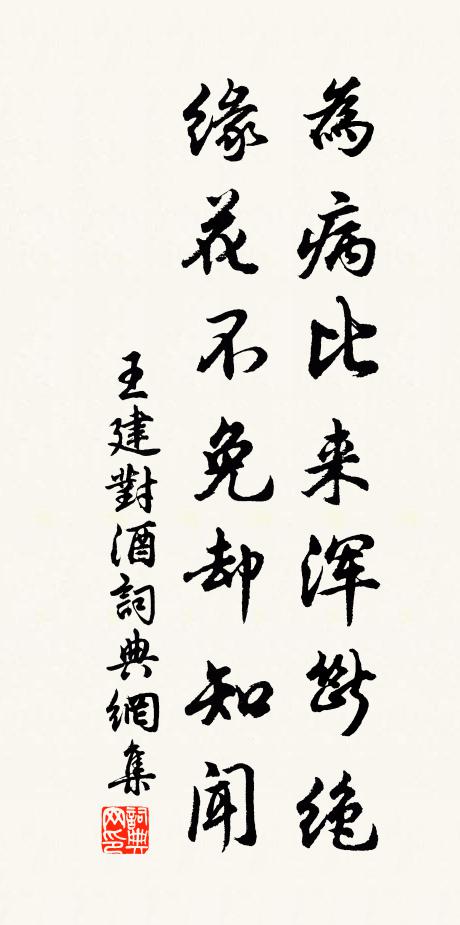 為病比来渾斷絶
緣花不免却知聞
王建對酒詞典網集
詞典网印